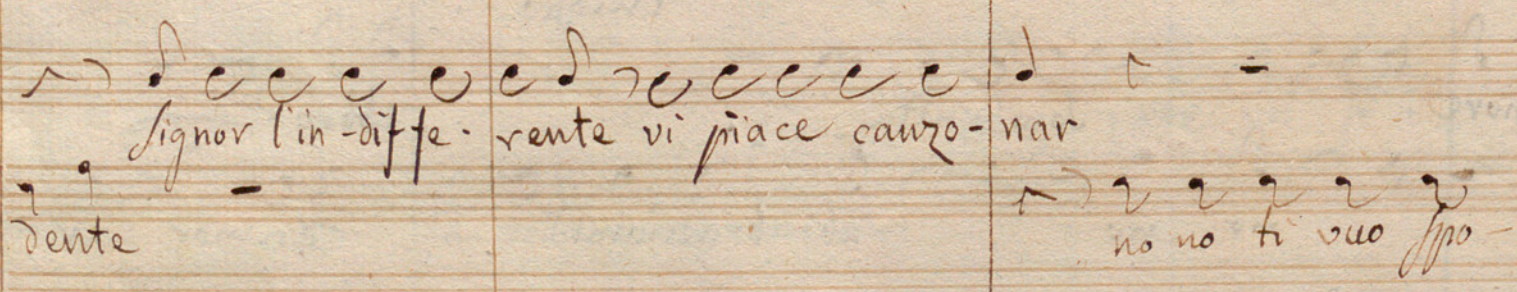 signor l'in-diffe-rente vi piace canzo-nar
dente no no ti vuo spo-